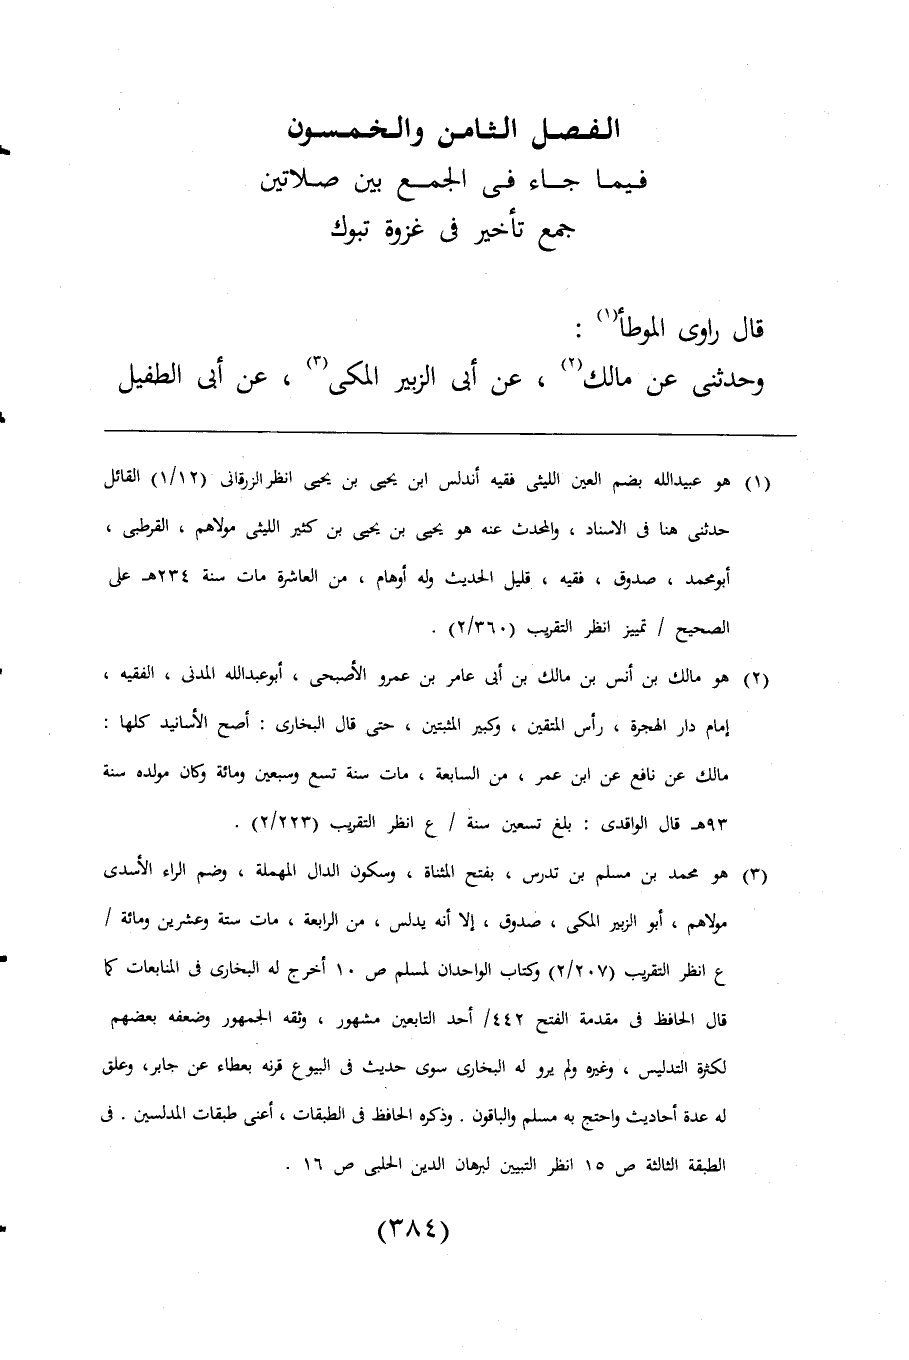 الفصل الثامن والخمسون
فيما جاء فى الجمع بين صلاتين
جمع تأخير فى غزوة تبوك
قال راوى الموطأ(١) :
وحدثنى عن مالك(٢) ، عن أبى الزبير المكى(٣) ، عن أبى الطفيل
(١) هو عبيدالله بضم العين الليثى فقيه أندلس ابن يحيى بن يحيى انظر الزرقانى (١/١٢) القائل
حدثنى هنا فى الاسناد ، والمحدث عنه هو يحيى بن يحيى بن كثير الليثى مولاهم ، القرطبى ،
أبومحمد ، صدوق ، فقيه ، قليل الحديث وله أوهام ، من العاشرة مات سنة ٢٣٤هـ على
الصحيح / تمييز انظر التقريب (٢/٣٦٠) .
(٢) هو مالك بن أنس بن مالك بن أبى عامر بن عمرو الأصبحى ، أبوعبدالله المدنى ، الفقيه ،
إمام دار الهجرة ، رأس المتقين ، وكبير المثبتين ، حتى قال البخارى : أصح الأسانيد كلها :
مالك عن نافع عن ابن عمر ، من السابعة ، مات سنة تسع وسبعين ومائة وكان مولده سنة
٩٣هـ قال الواقدى : بلغ تسعين سنة / ع انظر التقريب (٢/٢٢٣) .
(٣) هو محمد بن مسلم بن تدرس ، بفتح المثناة ، وسكون الدال المهملة ، وضم الراء الأسدى
مولاهم ، أبو الزبير المكى ، صدوق ، إلا أنه يدلس ، من الرابعة ، مات ستة وعشرين ومائة /
ع انظر التقريب (٢/٢٠٧) وكتاب الواحدان لمسلم ص ١٠ أخرج له البخارى فى المتابعات كما
قال الحافظ فى مقدمة الفتح ٤٤٢/ أحد التابعين مشهور ، وثقه الجمهور وضعفه بعضهم
لكثرة التدليس ، وغيره ولم يرو له البخارى سوى حديث فى البيوع قرنه بعطاء عن جابر، وعلق
له عدة أحاديث واحتج به مسلم والباقون . وذكره الحافظ فى الطبقات ، أعنى طبقات المدلسين . فى
الطبقة الثالثة ص ١٥ انظر التبيين لبرهان الدين الحلبى ص ١٦ .
(٣٨٤)